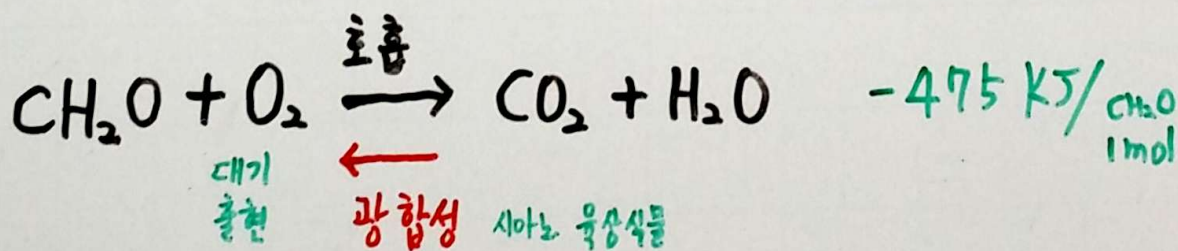 호흡
CH₂O + O₂ → CO₂ + H₂O -475 KJ/CH₂O 1mol
←
대기 출현
광합성
시아노, 육상식물